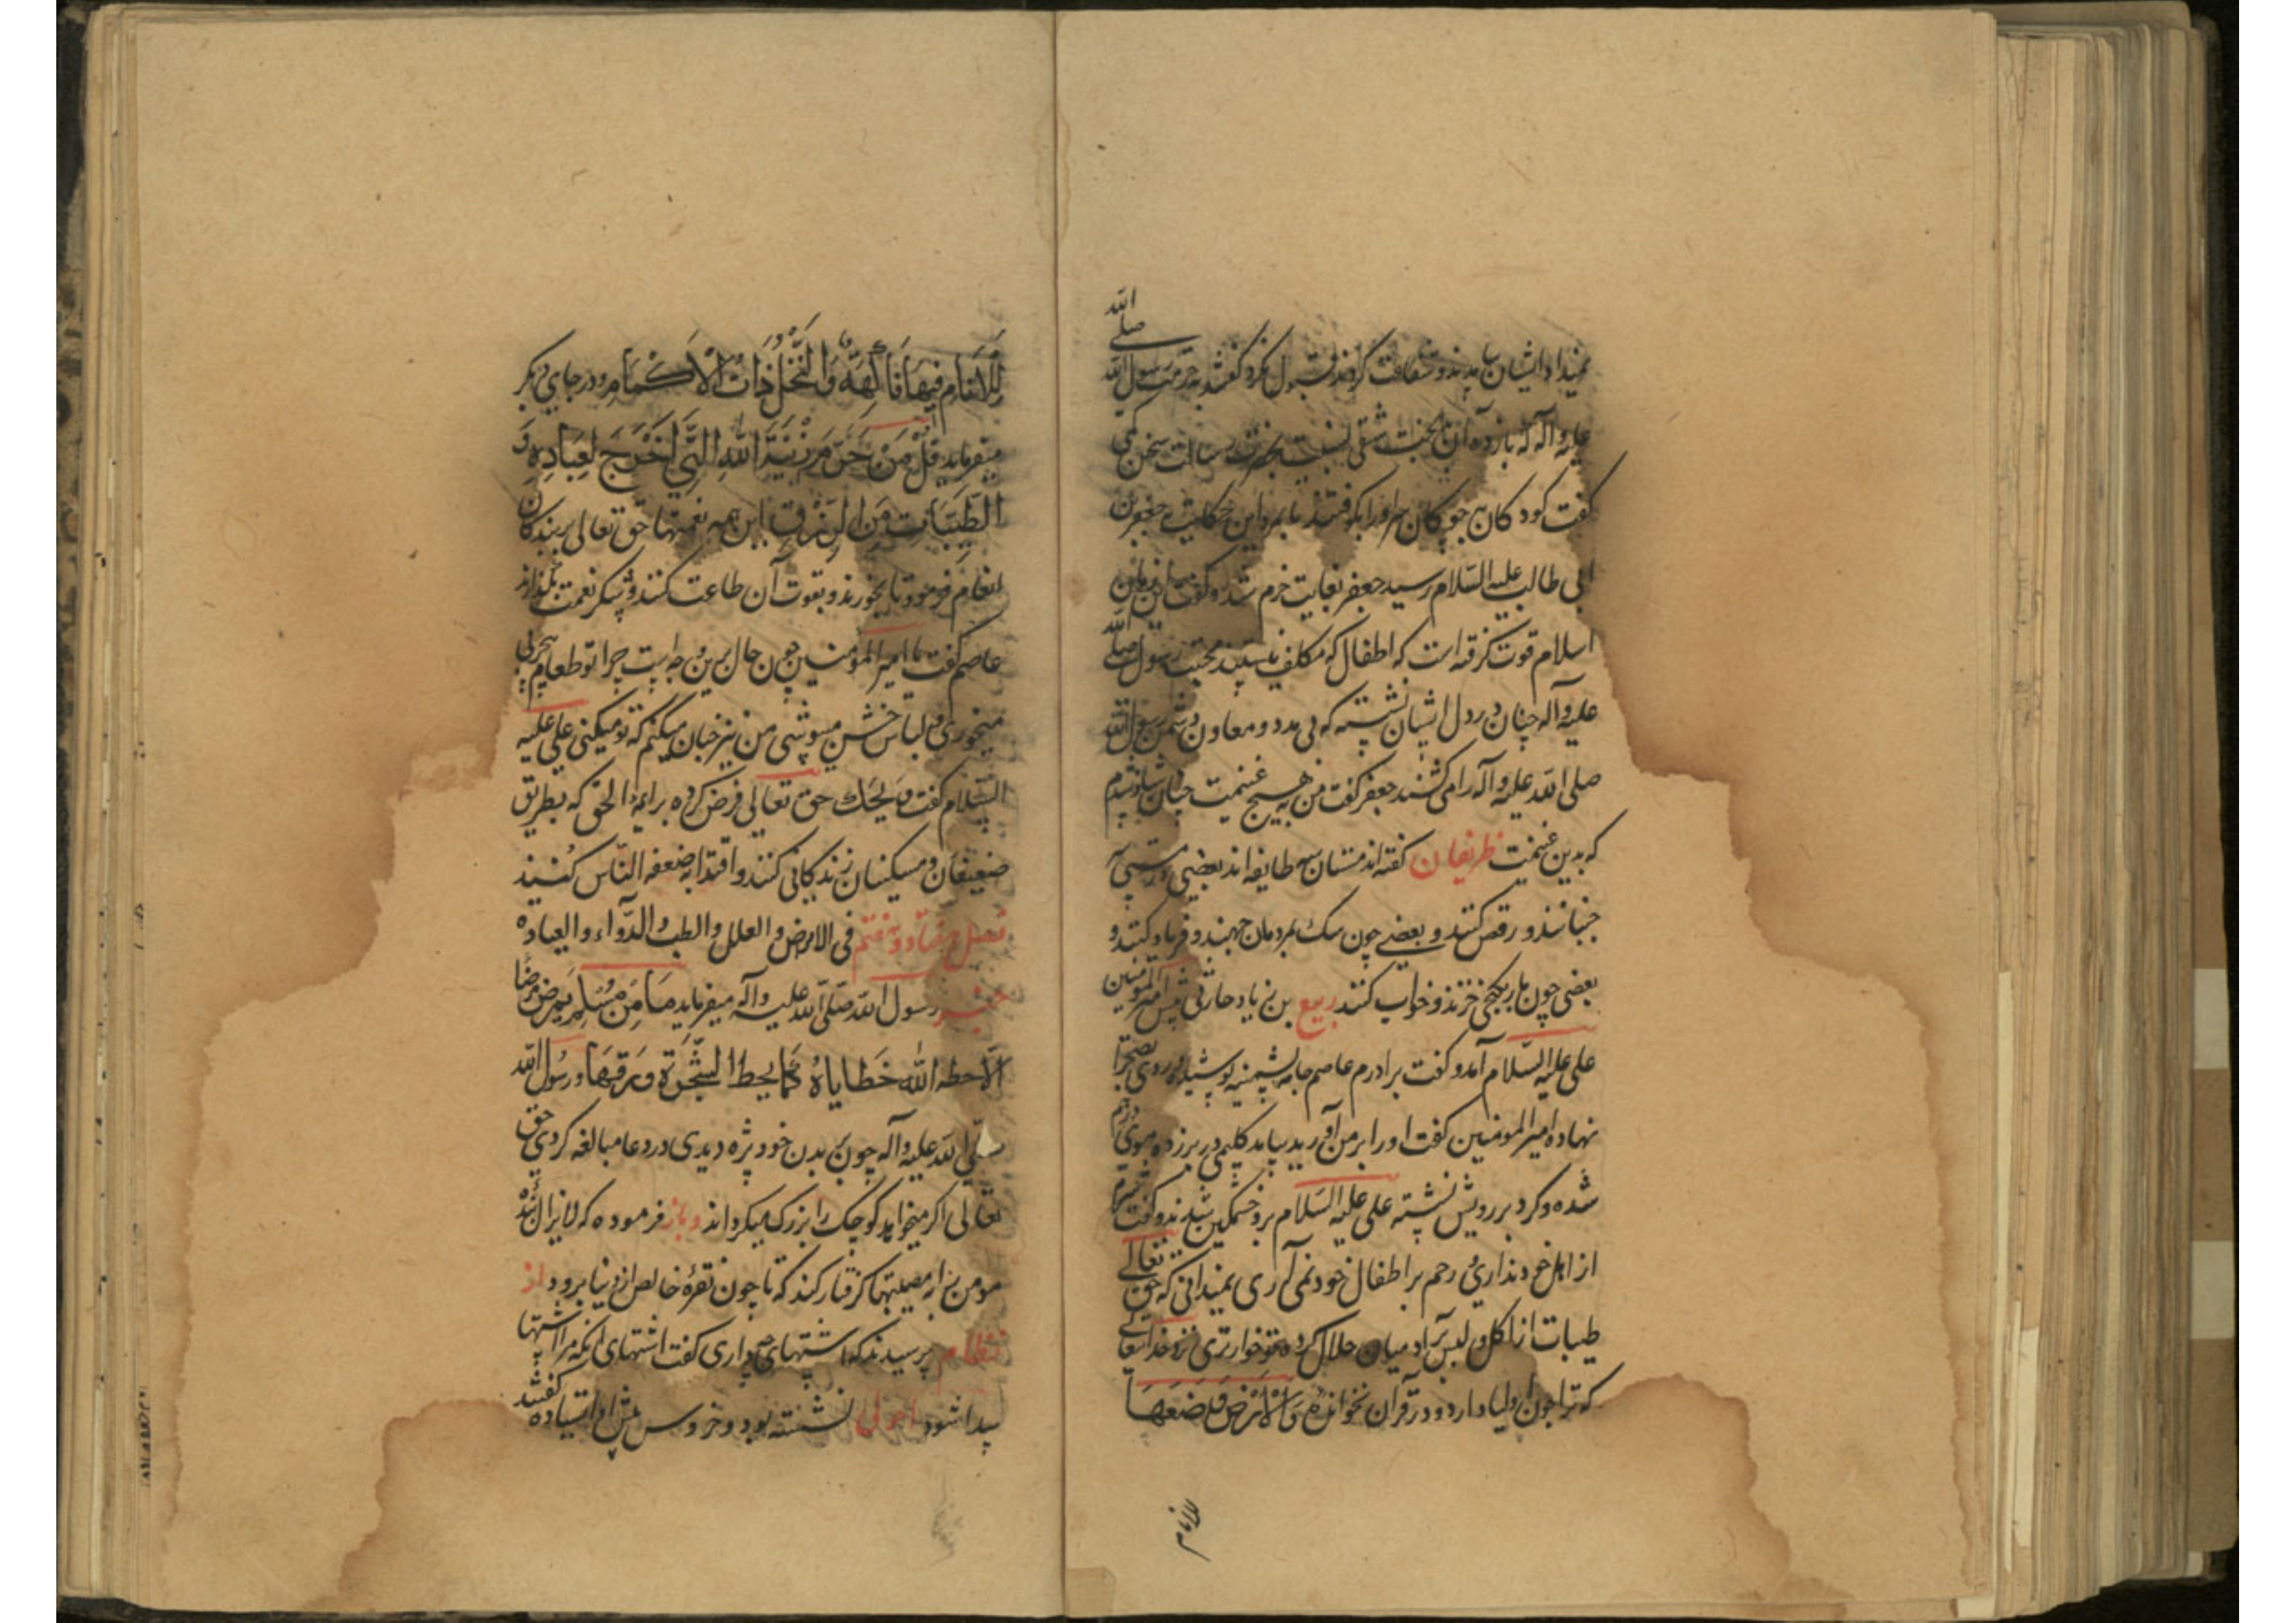 نمیداد ایشان بیامدند و شفاعت کردند قبول نکرد کفتند بحرمت رسول الله صلی الله
علیه و آله که باز ده آن بدبخت شقی نسبت بحضرت رسالت سخن
کفت کودکان بچوبکان سر او را بکوفتند تا بمرد این حکایت بجعفر بن
ابی طالب علیه السلام رسید جعفر بغایت خرم شد و کفت این زمان
اسلام قوت کرفته است که اطفال که مکلف نیستند محبت رسول صلی الله
علیه و آله چنان در دل ایشان نشسته که بی مدد و معاون دشمن رسول الله
صلی الله علیه و آله را می کشند جعفر کفت من به هیچ غنیمت چنان شاد نشدم
که بدین غنیمت ظریفان کفته اند مستان سه طایفه اند بعضی
جنبانند و رقص کنند و بعضی چون سک بمردمان جهند و فریاد کنند و
بعضی چون مار بکنجی خزند و خواب کنند ربیع بن زیاد حارثی پیش امیر المؤمنین
علی علیه السلام آمد و کفت برادرم عاصم جامه پشمینه پوشیده روی بصحرا
نهاده امیر المومنین کفت او را بر من آورید بیامد کلیمی در بر زده موی درهم
شده و کرد بر رویش نشسته علی علیه السلام برو خشمکین شدند و کفت شرم
از اهل خود نداری رحم بر اطفال خود نمی آری نمیدانی که حق تعالی
طیبات از اکل و لبس بر آدمیان حلال کرده تو خوارتری نزد خدای تعالی
که ترا چون اولیا دارد و در قرآن نخوانده وَالْاَرْضَ وَضَعَهَا
للانام
لِلْاَنَامِ فِیهَا فَاکِهَةٌ وَالنَّخْلُ ذَاتُ الْاَکْمَامِ و در جای دیکر
میفرماید قُلْ مَنْ حَرَّمَ زِینَةَ اللهِ الَّتِی اَخْرَجَ لِعِبَادِهِ وَ
الطَّیِّبَاتِ مِنَ الرِّزْقِ این همه نعمتها حق تعالی بر بندکان
انعام فرمود تا بخورند و بقوت آن طاعت کنند و شکر نعمت بکذارند
عاصم کفت یا امیر المؤمنین چون حال برین وجه است چرا تو طعام
میخوری و لباس خشن میپوشی من نیز چنان میکنم که تو میکنی علی علیه
السلام کفت وَیحَک حق تعالی فرض کرده بر ائمة الحق که بطریق
ضعیفان و مسکینان زندکانی کنند و اقتدا بضعفه الناس کنند
فصل هفتاد و هفتم فی الامراض و العلل و الطب و الدوآء و العیاده
خبر رسول الله صلی الله علیه و آله میفرماید مَا مِن مُسْلِمٍ یَمرَض مَرَضًا
اِلَّا حطه الله خَطایاهُ کَمَا یحط الشَّجَرَة وَرَقَهَا و رسول الله
صلی الله علیه و آله چون بر بدن خود بثره دیدی در دعا مبالغه کردی حق
تعالی اکر میخواهد کوچک را بزرک میکرداند و باز فرموده که لایزال بنده
مومن را به مصیبتها کرفتار کند که تا چون نقره خالص از دنیا برود از
نظام پرسیدند که اشتهای چه داری کفت اشتهای انکه مرا اشتها
پیدا شود اعرابی نشسته بود و خروس پیش او ایستاده کفتند